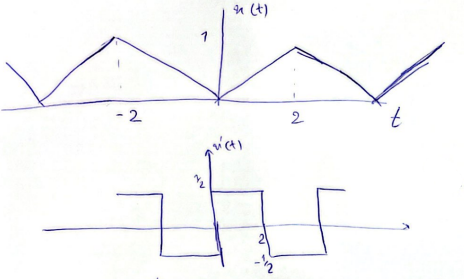 x(t)
1
-2
2
t
x'(t)
1/2
2
-1/2